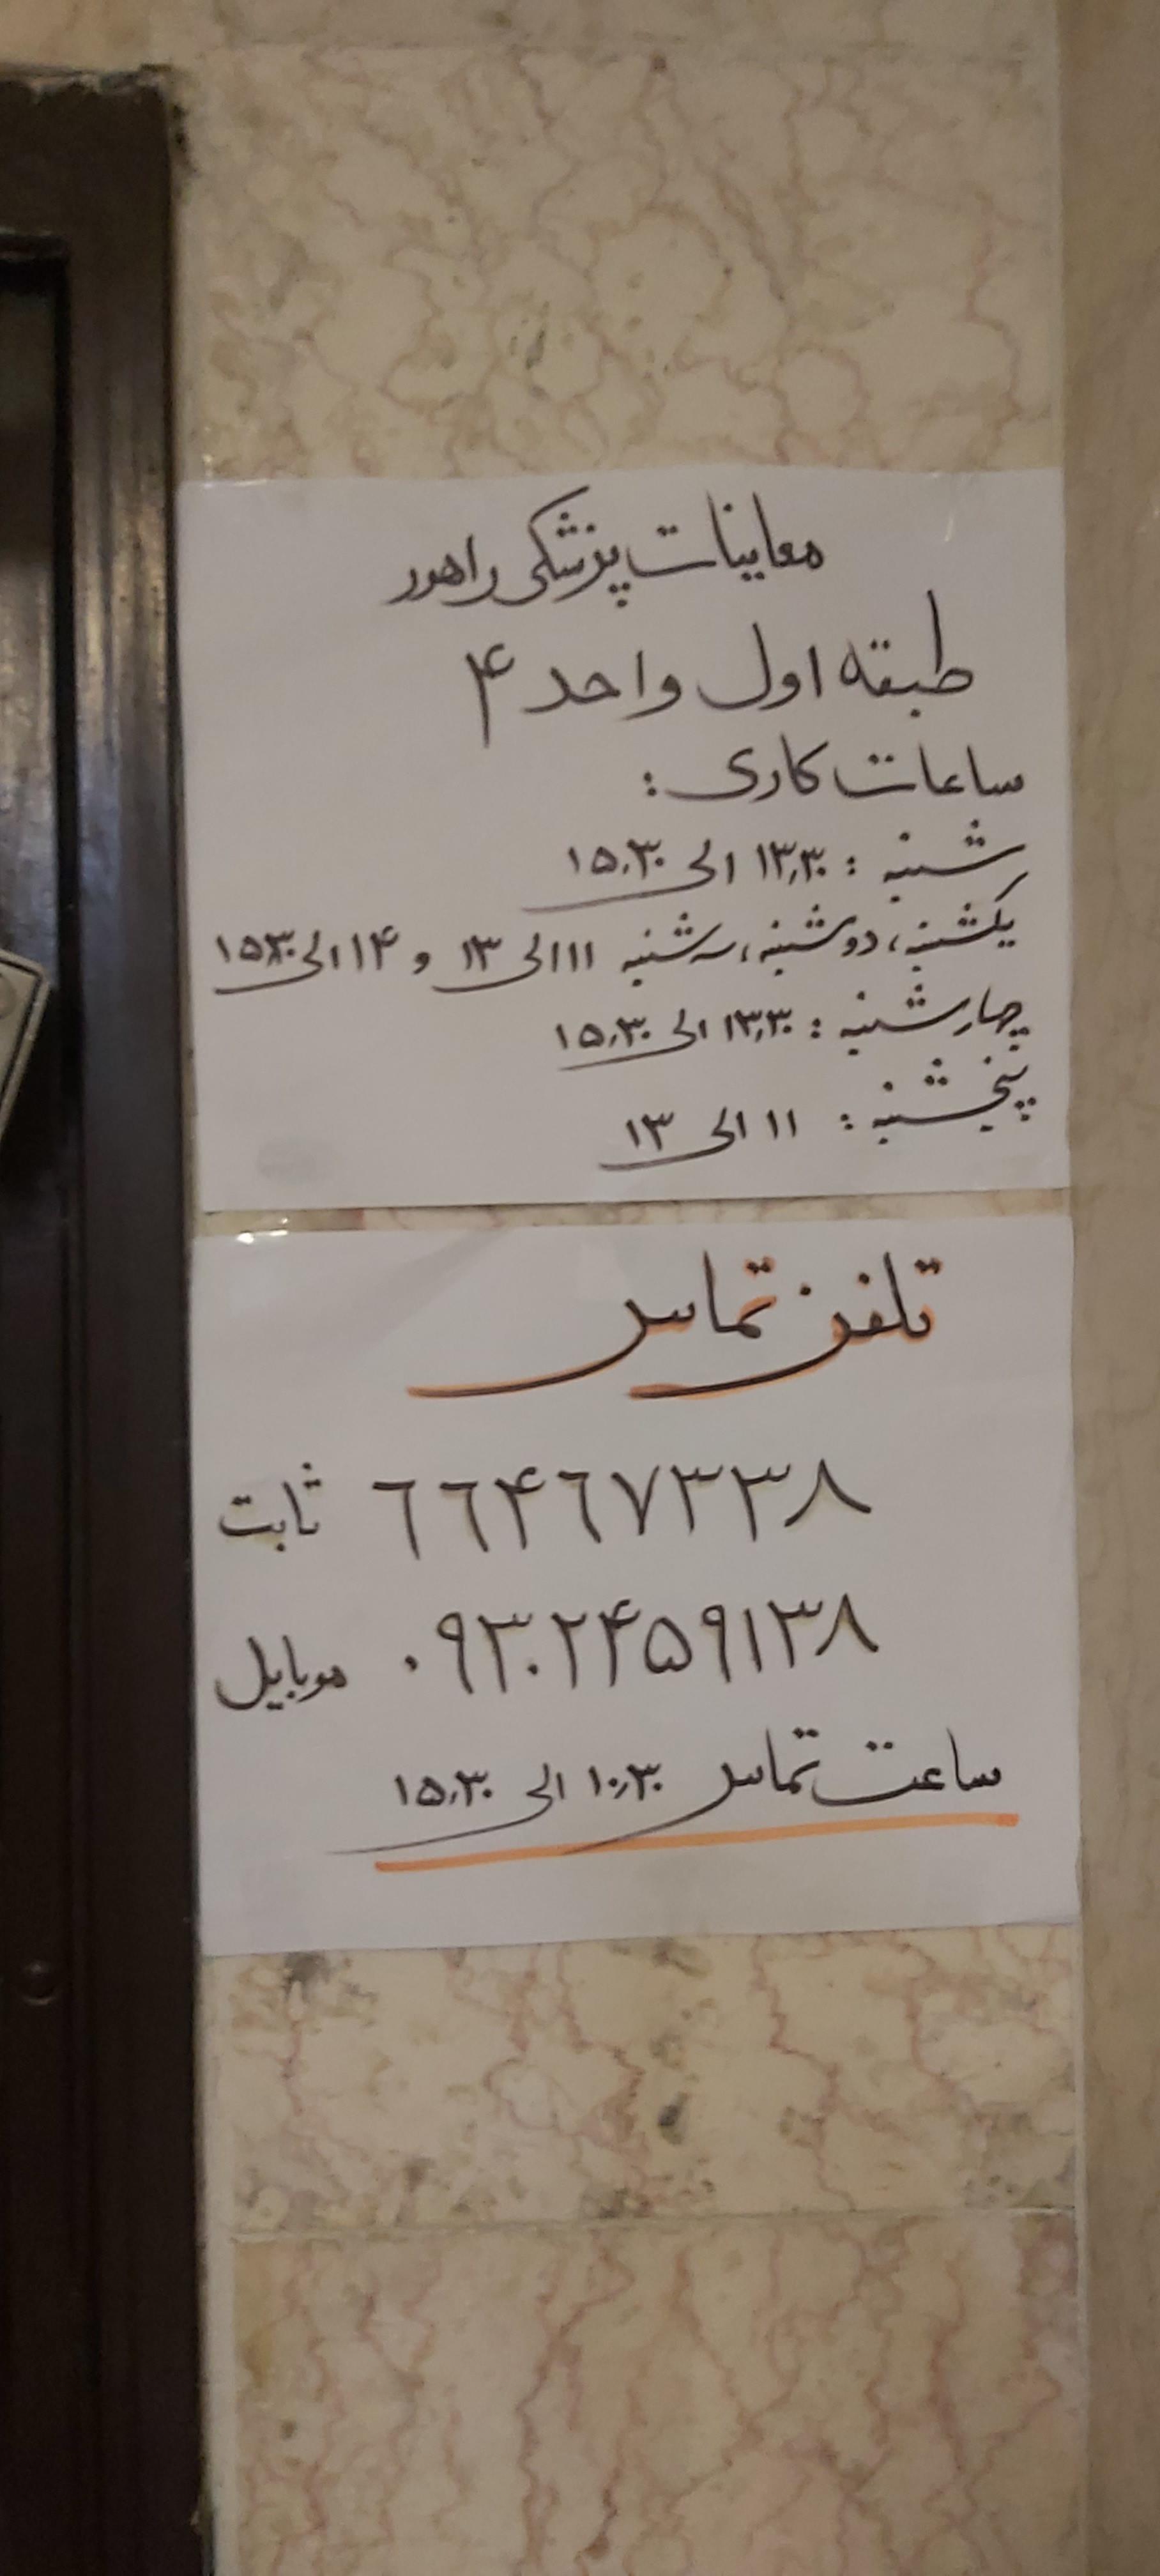 معاینات پزشکی راهور
طبقه اول واحد ۴
ساعات کاری :
شنبه : ۱۳:۳۰ الی ۱۵:۳۰
یکشنبه، دوشنبه، سه شنبه ۱۱ الی ۱۳ و ۱۴ الی ۱۵:۳۰
چهارشنبه : ۱۳:۳۰ الی ۱۵:۳۰
پنجشنبه : ۱۱ الی ۱۳
تلفن تماس
۶۶۴۶۷۳۳۸ ثابت
۰۹۳۰۲۴۵۹۱۳۸ موبایل
ساعت تماس ۱۰:۳۰ الی ۱۵:۳۰